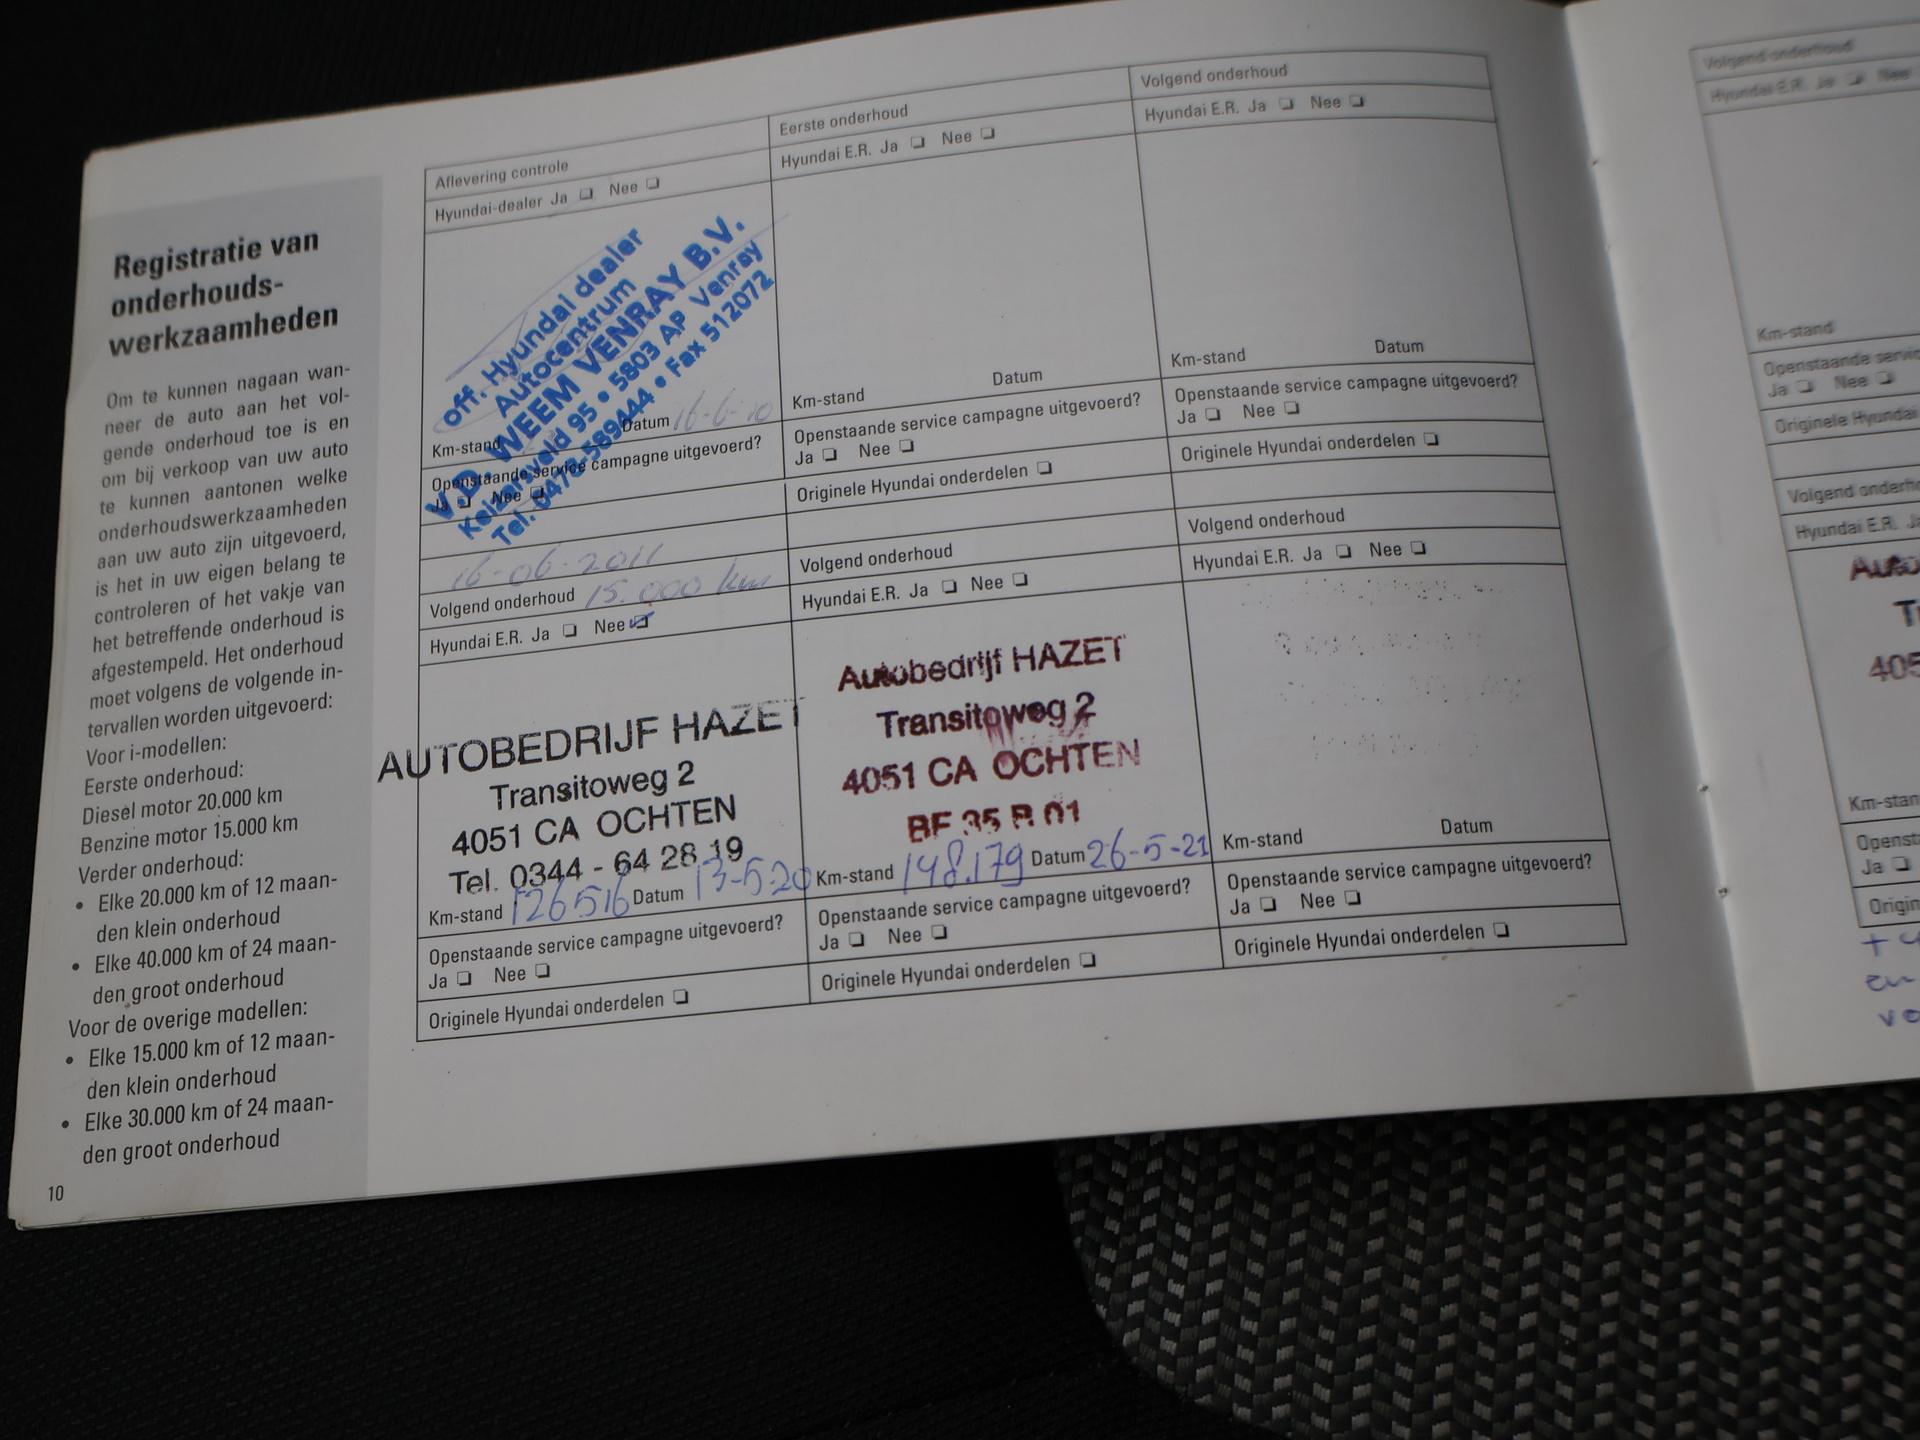 Registratie van
onderhouds-
werkzaamheden
Om te kunnen nagaan wan-
neer de auto aan het vol-
gende onderhoud toe is en
om bij verkoop van uw auto
te kunnen aantonen welke
onderhoudswerkzaamheden
aan uw auto zijn uitgevoerd,
is het in uw eigen belang te
controleren of het vakje van
het betreffende onderhoud is
afgestempeld. Het onderhoud
moet volgens de volgende in-
tervallen worden uitgevoerd:
Voor i-modellen:
Eerste onderhoud:
Diesel motor 20.000 km
Benzine motor 15.000 km
Verder onderhoud:
• Elke 20.000 km of 12 maan-
den klein onderhoud
• Elke 40.000 km of 24 maan-
den groot onderhoud
Voor de overige modellen:
• Elke 15.000 km of 12 maan-
den klein onderhoud
• Elke 30.000 km of 24 maan-
den groot onderhoud
10
Aflevering controle
Hyundai-dealer Ja ❏ Nee ❏
off. Hyundai dealer
Autocentrum
V.D. WEEM VENRAY B.V.
Keizersveld 95 • 5803 AP Venray
Tel. 0478-589444 • Fax 512072
Km-stand Datum 16-6-10
Openstaande service campagne uitgevoerd?
Ja ❏ Nee ❏
16-06-2011
Eerste onderhoud
Hyundai E.R. Ja ❏ Nee ❏
Km-stand Datum
Openstaande service campagne uitgevoerd?
Ja ❏ Nee ❏
Originele Hyundai onderdelen ❏
Volgend onderhoud
Hyundai E.R. Ja ❏ Nee ❏
Km-stand Datum
Openstaande service campagne uitgevoerd?
Ja ❏ Nee ❏
Originele Hyundai onderdelen ❏
Volgend onderhoud 15.000 km
Hyundai E.R. Ja ❏ Nee ❏
AUTOBEDRIJF HAZET
Transitoweg 2
4051 CA OCHTEN
Tel. 0344 - 64 28 19
Km-stand 126516 Datum 13-5-20
Openstaande service campagne uitgevoerd?
Ja ❏ Nee ❏
Originele Hyundai onderdelen ❏
Volgend onderhoud
Hyundai E.R. Ja ❏ Nee ❏
Autobedrijf HAZET
Transitoweg 2
4051 CA OCHTEN
BE 35 R 01
Km-stand 148.179 Datum 26-5-21
Openstaande service campagne uitgevoerd?
Ja ❏ Nee ❏
Originele Hyundai onderdelen ❏
Volgend onderhoud
Hyundai E.R. Ja ❏ Nee ❏
Km-stand Datum
Openstaande service campagne uitgevoerd?
Ja ❏ Nee ❏
Originele Hyundai onderdelen ❏
Volgend onderhoud
Hyundai E.R. Ja ❏ Nee
Km-stand
Openstaande
Ja ❏ Nee ❏
Originele Hyundai
Volgend
Hyundai E.R.
405
Km-stan
Openst
Ja ❏
Origin
+
en